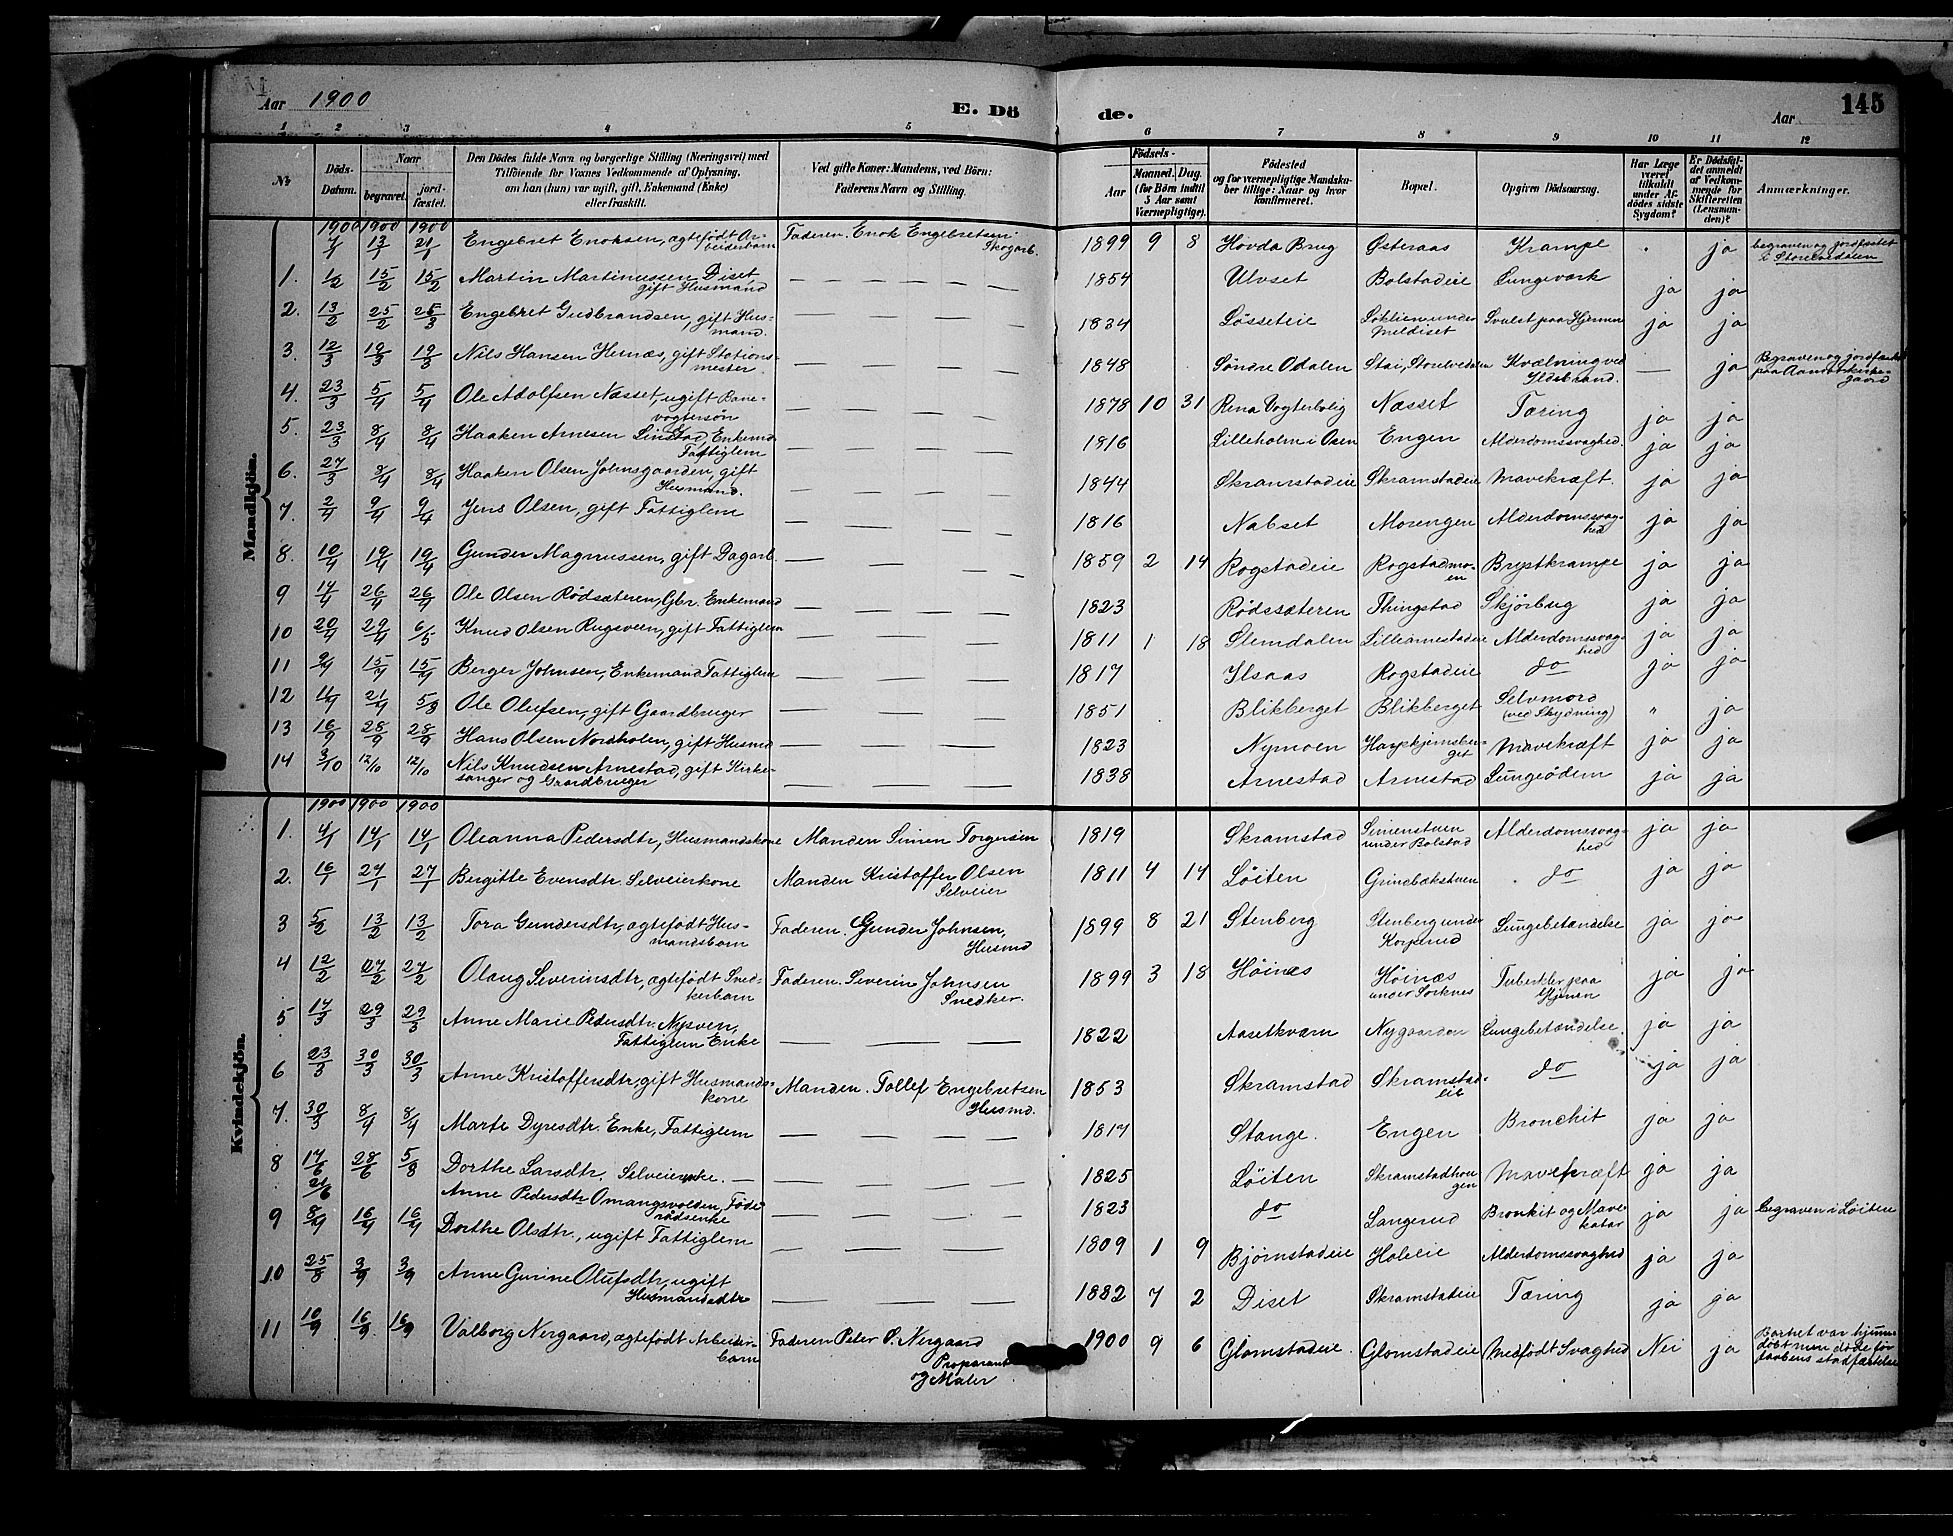 Aar 1900 E. Dö de. Aar 145
1 2 3 4 5 6 7 8 9 10 11 12
№ Döds-Datum. Naar begravet. jord-fæstet. Den Dödes fulde Navn og borgerlige Stilling (Næringsvei) med Tilföiende for Voxnes Vedkommende af Oplysning, om han (hun) var ugift, gift, Enkemand (Enke) eller fraskilt. Ved gifte Koner: Mandens, ved Börn: Faderens Navn og Stilling. Födsels- Aar Maaned. Dag. (for Börn indtil 5 Aar samt Værnepligtige). Födested og for værnepligtige Mandskaber tillige: Naar og hvor konfirmeret. Bopæl. Opgiven Dödsaarsag. Har Læge været tilkaldt under Afdödes sidste Sygdom? Er Dödsfaldet anmeldt af Vedkommende for Skifteretten (Lensmanden)? Anmærkninger.
Mandkjön.
1900 1900 1900
7/1 13/1 21/1 Engebret Enoksen, ægtefödt Arbeiderbarn Faderen. Enok Engebretsen Skogarb. 1899 9 8 Hovda Brug Østeraas Krampe " ja begraven og jordfæstet i Storelvedalen
1. 1/2 15/2 15/2 Martin Martinussen Diset gift Husmand 1854 Ulvset Bolstadeie Lungeværk ja ja
2. 13/2 25/2 25/3 Engebret Gudbrandsen, gift Husmand. 1834 Løsseteie Løklien under Meldiset Svulst paa Hjernen ja ja
3. 12/3 19/3 19/3 Nils Hansen Hernæs, gift Stationsmester. 1848 Søndre Odalen Stai, Storelvedalen Kvælning ved Ildsbrand. — ja Begraven og jordfæstet paa Aamot Kirkegaard
4. 23/3 5/4 5/4 Ole Adolfsen Næsset, ugift Banevogtersøn 1878 10 31 Rena Vogterbolig Næsset Tæring ja ja
5. 23/3 8/4 8/4 Haaken Arnesen Linstad, Enkemd Fattiglem 1816 Lilleholm i Osen Engen Alderdomssvaghed ja ja
6. 27/3 8/4 8/4 Haaken Olsen Johnsgaarden, gift Husmand. 1844 Skramstadeie Skramstadeie Mavekræft. ja ja
7. 2/4 9/4 9/4 Jens Olsen, gift Fattiglem 1816 Nabset Morengen Alderdomssvaghed ja ja
8. 10/4 19/4 19/4 Gunder Magnussen, gift Dagarb. 1859 2 14 Rogstadeie Rogstadmoen Brystkrampe ja ja
9 14/4 26/4 26/4 Ole Olsen Rødsæteren, Gbr. Enkemand 1823 Rødssæteren Thingstad Skjörbug ja ja
10 20/4 29/4 6/5 Knud Olsen Rugsveen, gift Fattiglem 1811 1 18 Slemdalen Lillearnestadeie Alderdomssvaghed ja ja
11 9/4 15/4 15/4 Berger Johnsen, Enkemand Fattiglem 1817 Ilsaas Rogstadeie do ja ja
12 11/4 21/4 5/8 Ole Olufsen, gift Gaardbruger 1851 Blikberget Blikberget Selvmord (ved Skydning) " ja
13 16/9 28/9 28/9 Hans Olsen Nordholen, gift Husmd 1823 Nymoen Harpekjernsberget Mavekræft ja ja
14 3/10 12/10 12/10 Nils Knudsen Arnestad, gift Kirkesanger og Gaardbruger 1838 Arnestad Arnestad Lungeödem ja ja
Kvindekjön.
1900 1900 1900
1. 4/1 14/1 14/1 Oleanna Pedersdtr, Husmandskone Manden Simen Torgersen 1819 Skramstad Simenstuen under Bolstad Alderdomssvaghed ja ja
2. 16/1 27/1 27/1 Bergitte Evensdtr. Selveierkone Manden Kristoffer Olsen Selveier 1811 4 14 Løiten Grinebækstuen do ja ja
3 5/2 13/2 13/2 Tora Gundersdtr, ægtefödt Husmandsbarn Faderen. Gunder Johnsen, Husmd 1899 8 21 Stenberg Stenberg under Korperud Lungebetændelse ja ja
4 12/2 27/2 27/2 Olaug Severinsdtr, ægtefödt Snedkerbarn Faderen. Severin Johnsen Snedker. 1899 3 18 Høinæs Høinæs under Sorknes Tuberkler paa Hjernen ja ja
5 17/3 29/3 29/3 Anne Marie Pedersdtr. Nysven, Fattiglem Enke 1822 Aasetkværn Nygaarden Lungebetændelse. ja ja
6 23/3 30/3 30/3 Anne Kristoffersdtr, gift Husmandskone Manden. Tollef Engebretsen Husmd. 1853 Skramstad Skramstadeie do ja ja
7. 30/3 8/4 8/4 Marte Dyresdtr. Enke, Fattiglem 1817 Stange. Engen Bronchit ja ja
8 17/6 28/6 5/8 Dorthe Larsdtr. Selveierenke. 1825 Løiten Skramstadhougen Mavekræft ja ja
21/6 Anne Pedersdtr Omangsvolden, Føderådsenke 1823 do Langerud Bronkit og Mavekatar ja ja begraven i Løiten
9 8/4 16/4 16/4 Dorthe Olsdtr., ugift Fattiglem 1809 1 9 Bjørnstadeie Holeie Alderdomssvaghed ja ja
10 25/8 3/9 3/9 Anne Gurine Olufsdtr, ugift Husmandsdtr 1882 7 2 Diset Skramstadeie Tæring ja ja
11 10/9 16/9 16/9 Valborg Nergaard, ægtefödt Arbeiderbarn Faderen Peter O. Nergaard Proparant og Maler 1900 9 6 Glomstadeie. Glomstadeie Medfödt Svaghed Nei ja Barnet var hjemmedöbt men döde før daabens stadfæstelse